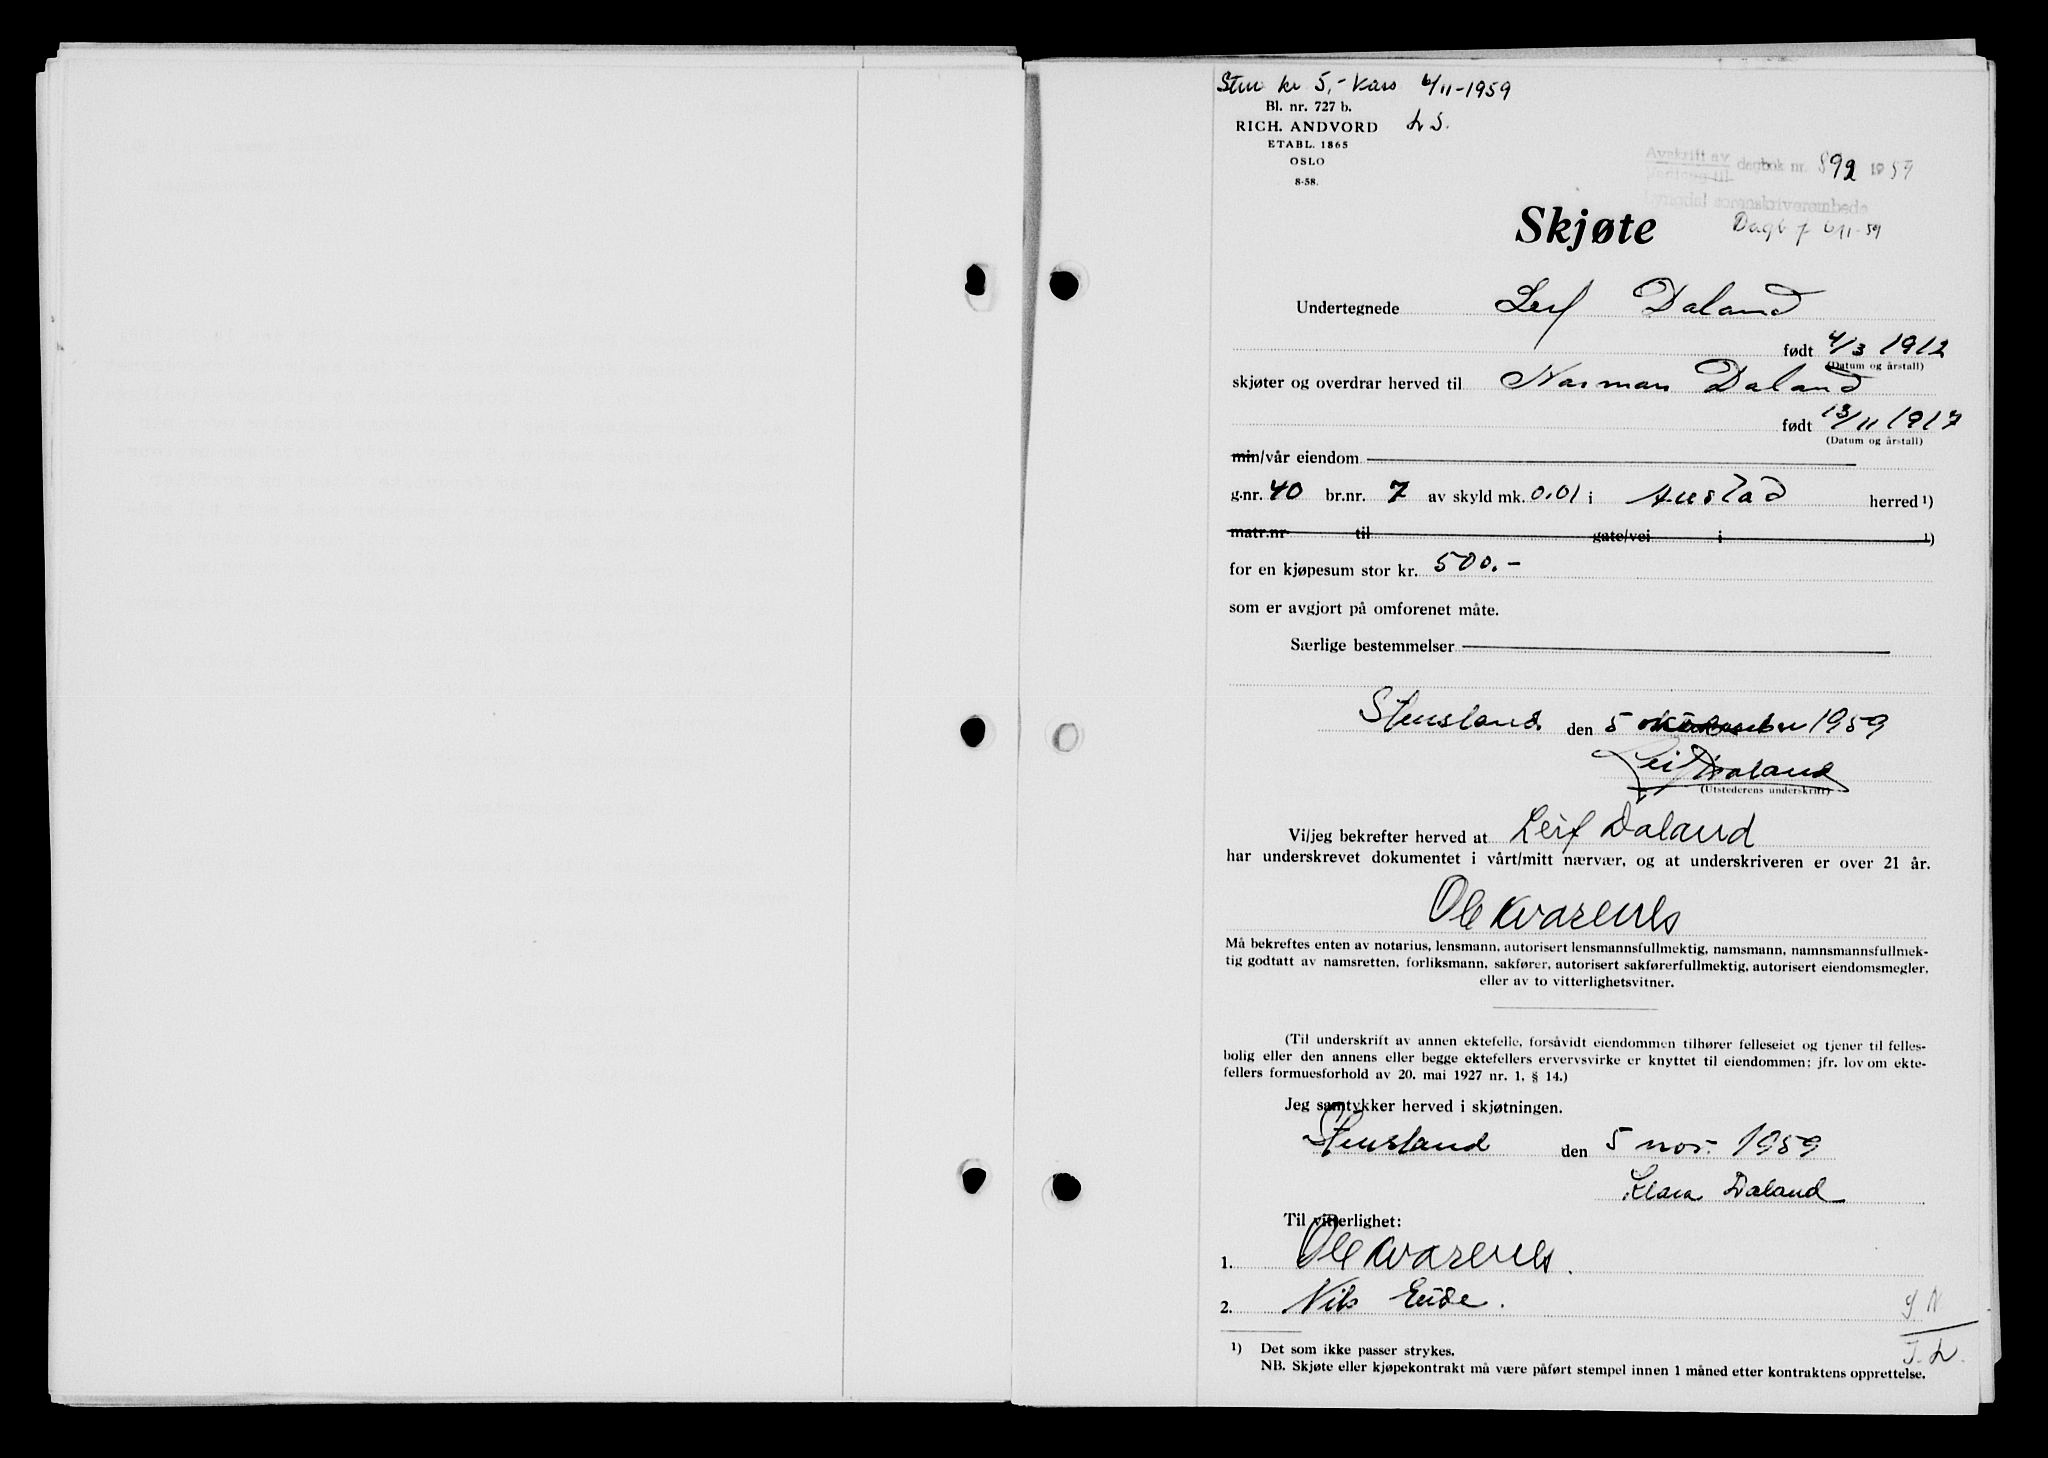 Stm kr 5,- Kass 6/11-1959
Bl. nr. 727 b.
RICH. ANDVORD L S.
ETABL. 1865
OSLO
8-58.
Avskrift av
dagbok nr. 892 1959
sorenskriverembede
Dagb f 6/11-59
Skjøte
Undertegnede Leif Daland
født 4/3 1912
(Datum og årstall)
skjøter og overdrar herved til Norman Daland
født 13/11 1917
(Datum og årstall)
min/vår eiendom
g.nr. 40 br.nr. 7 av skyld mk. 0.01 i Austad herred 1)
matr.nr til gate/vei i 1)
for en kjøpesum stor kr. 500.-
som er avgjort på omforenet måte.
Særlige bestemmelser
Stensland den 5 1959
Leif Daland
(Utstederens underskrift)
Vi/jeg bekrefter herved at Leif Daland
har underskrevet dokumentet i vårt/mitt nærvær, og at underskriveren er over 21 år.
Ole Kvarenes
Må bekreftes enten av notarius, lensmann, autorisert lensmannsfullmektig, namsmann, namnsmannsfullmek-
tig godtatt av namsretten, forliksmann, sakfører, autorisert sakførerfullmektig, autorisert eiendomsmegler,
eller av to vitterlighetsvitner.
(Til underskrift av annen ektefelle, forsåvidt eiendommen tilhører felleseiet og tjener til felles-
bolig eller den annens eller begge ektefellers ervervsvirke er knyttet til eiendommen; jfr. lov om ekte-
fellers formuesforhold av 20. mai 1927 nr. 1, § 14.)
Jeg samtykker herved i skjøtningen.
Stensland den 5 nov. 1959
Klara Daland
Til vitterlighet:
1. Ole Kvarenes.
2. Nils Eide.
1) Det som ikke passer strykes.
NB. Skjøte eller kjøpekontrakt må være påført stempel innen 1 måned etter kontraktens opprettelse.